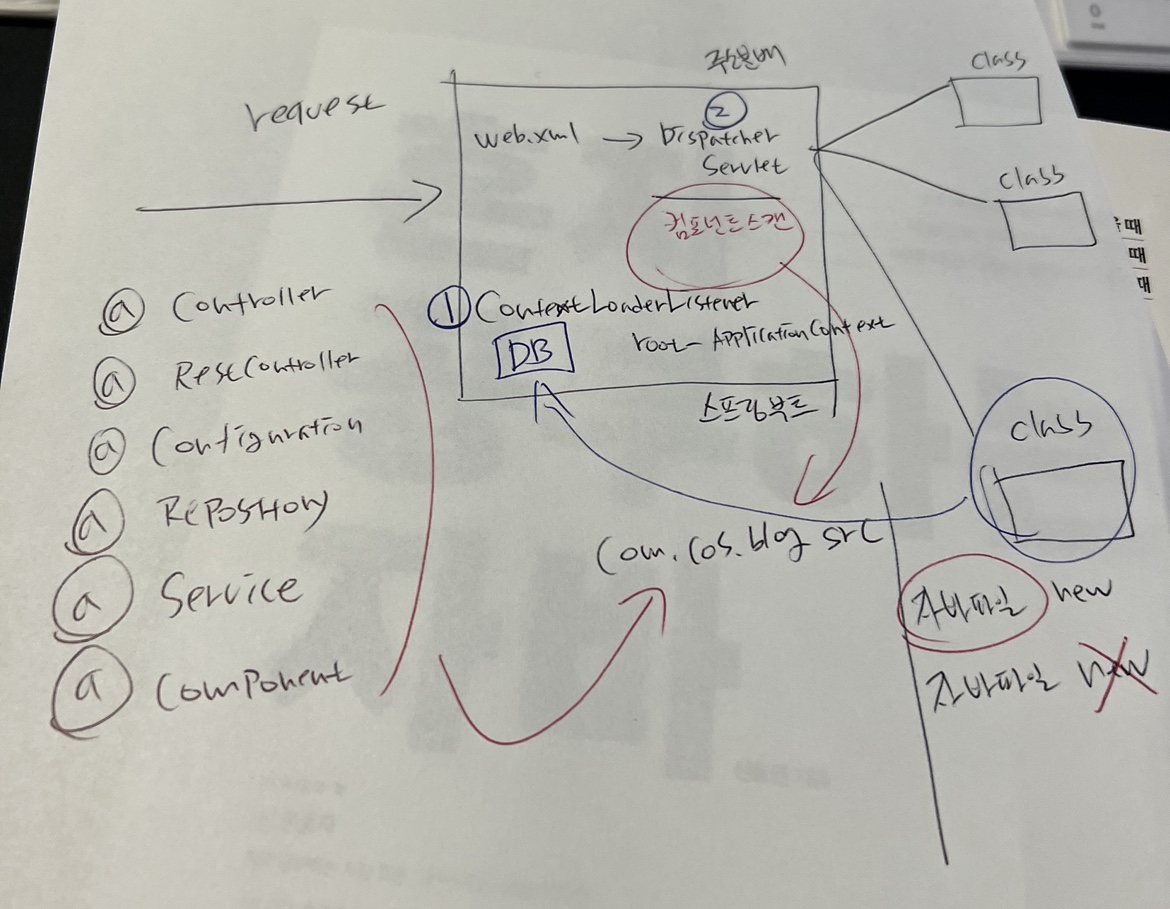 주소분배
class
request
②
web.xml → Dispatcher
Servlet
class
컴포넌트스캔
때
때
대
ⓐ Controller
① ContextLoaderListener
root-ApplicationContext
DB
ⓐ RestController
스프링부트
class
ⓐ Configuration
ⓐ Repository
com.cos.blog src
ⓐ Service
자바파일 new
ⓐ Component
자바파일 new